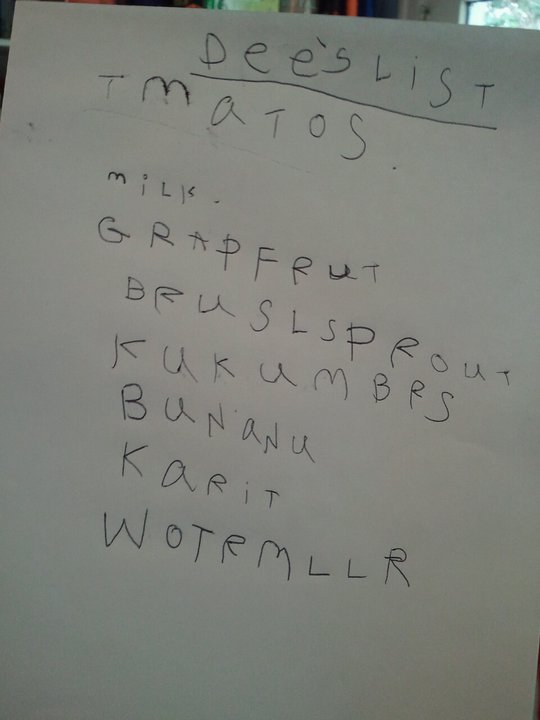 Dee's LiST
TMaTOS.
miLK.
GRAPFRuT
BRUSLSPROUT
KUKUMBRS
BUNaNU
KaRiT
WOTRMLLR